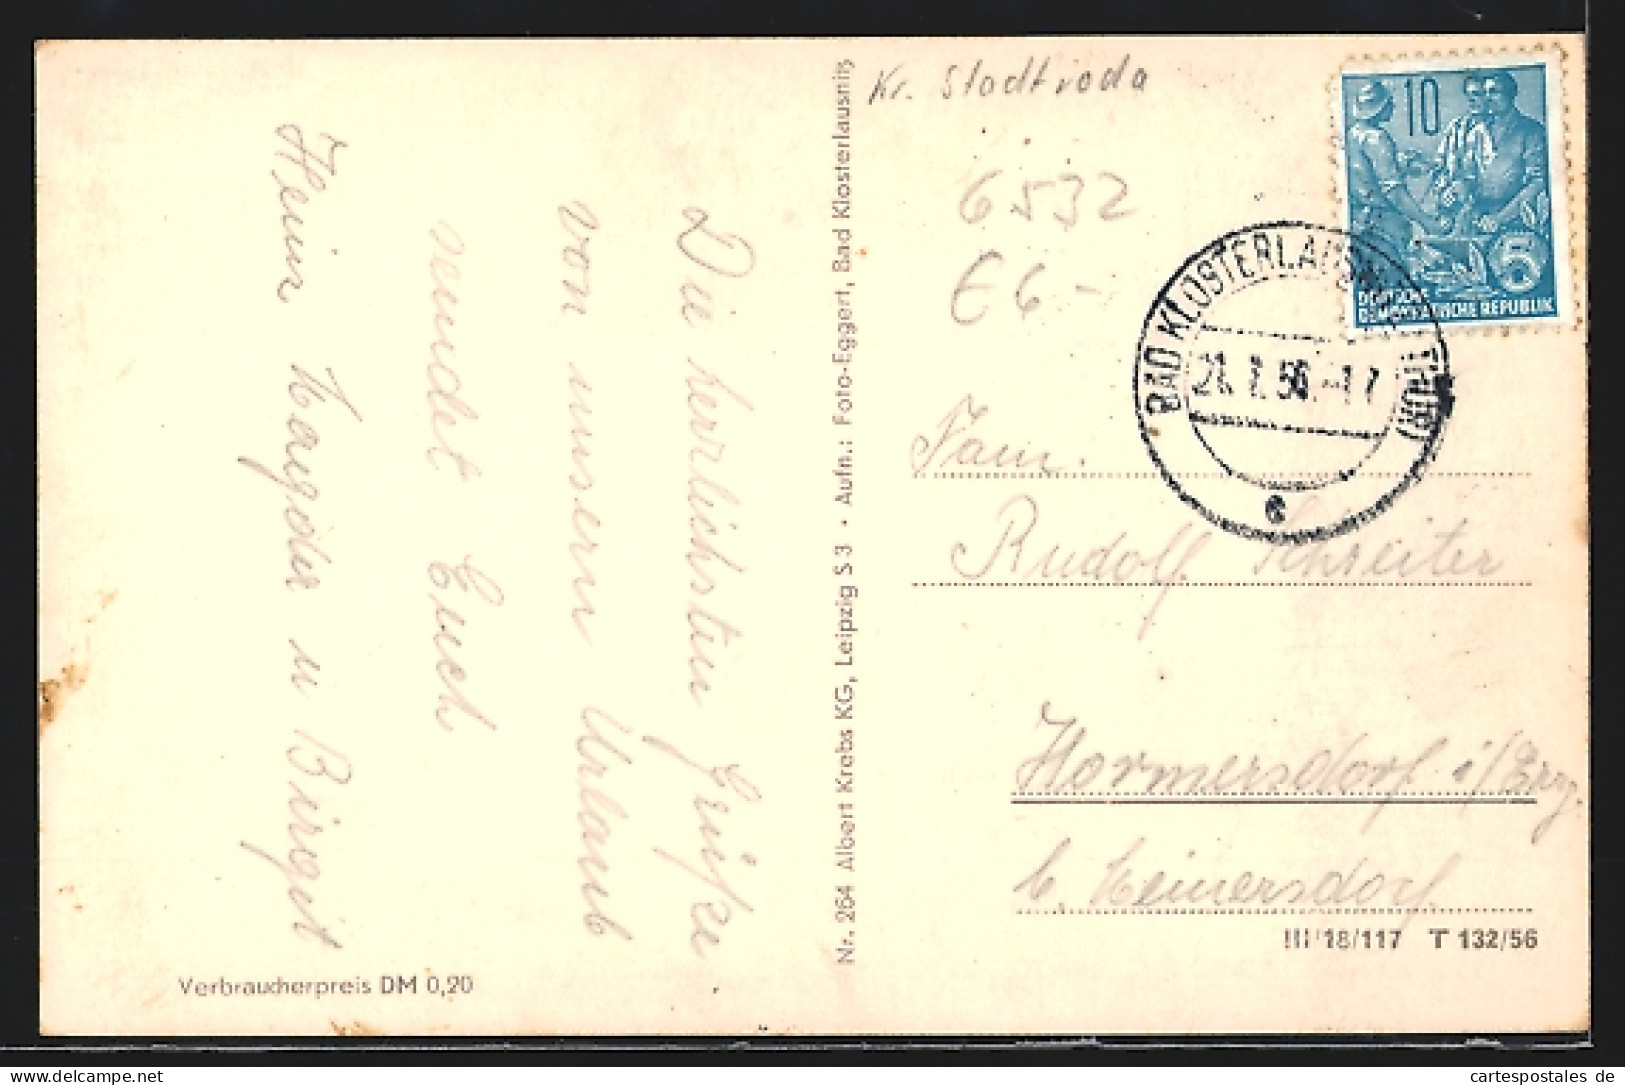 Die herrlichsten Grüße
von unserm Urlaub
sendet Euch
Heinz Magda u Birgit
Verbraucherpreis DM 0,20
Nr. 264 Albert Krebs KG, Leipzig S 3 · Aufn.: Foto-Eggert, Bad Klosterlausnitz
Kr. Stadtroda
6532
€6-
10
5
DEUTSCHE
DEMOKRATISCHE REPUBLIK
BAD KLOSTERLAUSNITZ (THÜR)
21.7.56.-17
e
Fam.
Rudolf Schreiter
Hormersdorf i/Erzg.
b. Meinersdorf
III/18/117 T 132/56
cartespostales de
www.delcampe.net